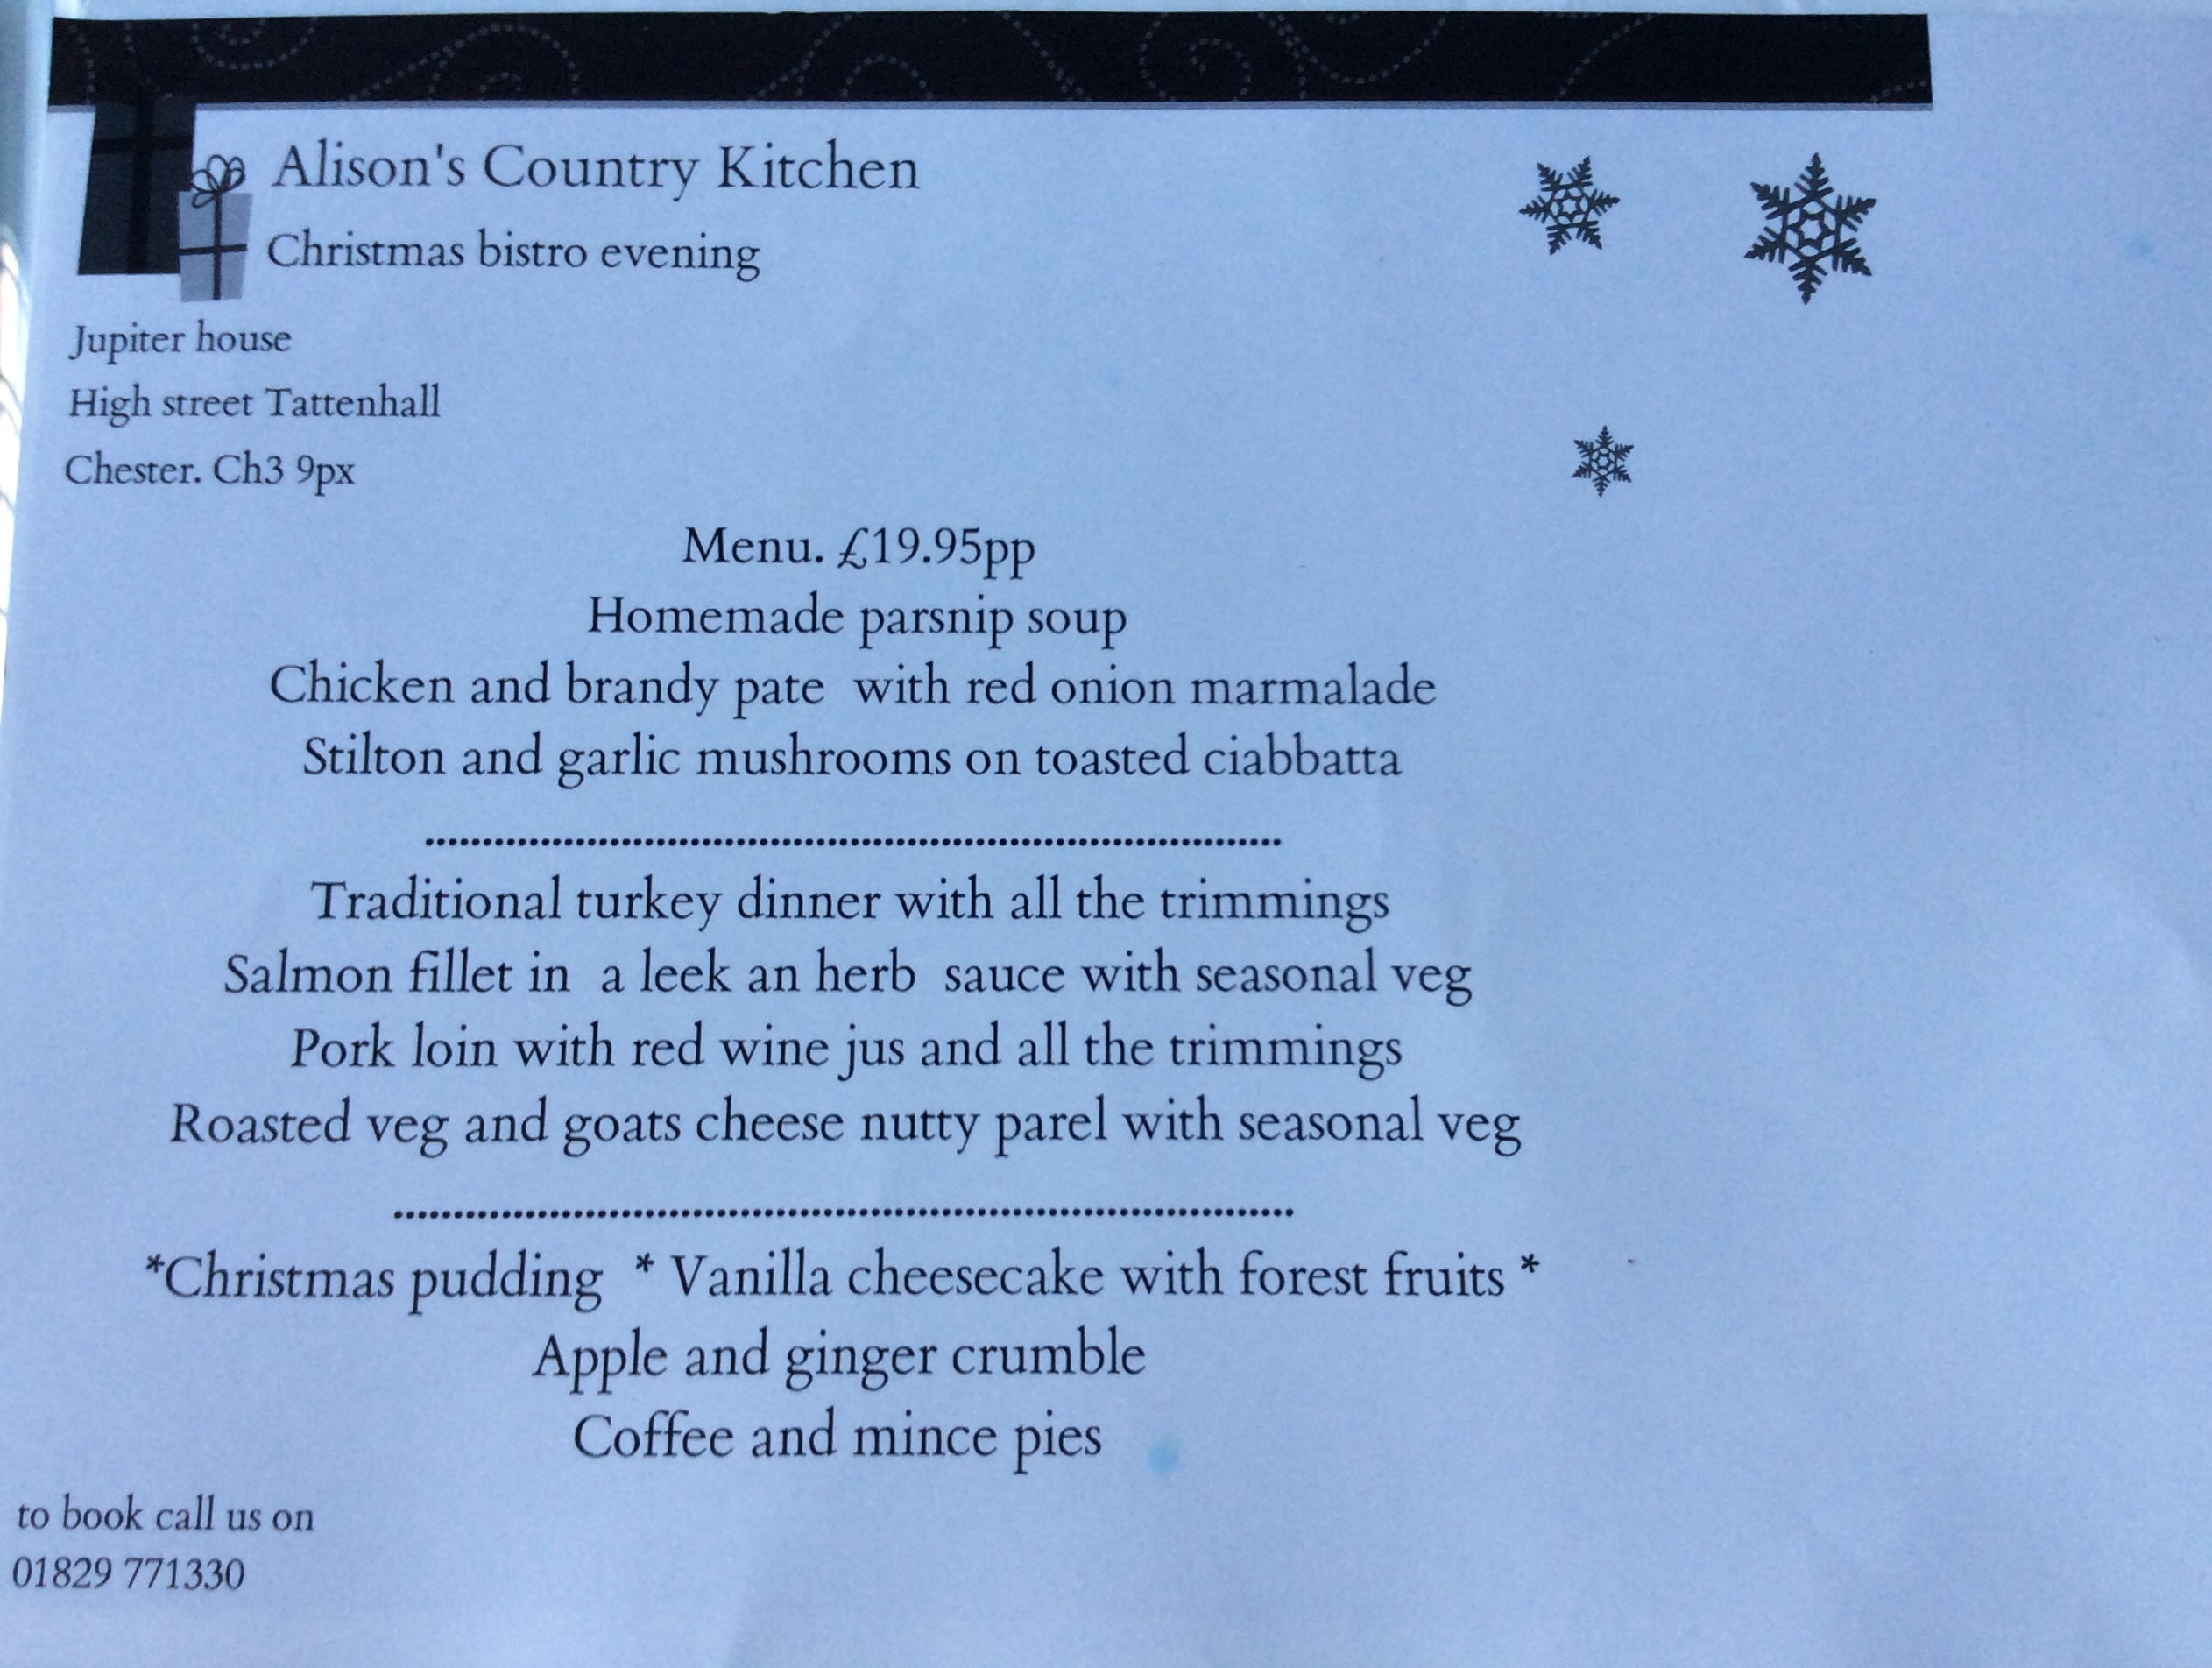 Alison's Country Kitchen
Christmas bistro evening
Jupiter house
High street Tattenhall
Chester. Ch3 9px
Menu. £19.95pp
Homemade parsnip soup
Chicken and brandy pate  with red onion marmalade
Stilton and garlic mushrooms on toasted ciabbatta
................................................................................
Traditional turkey dinner with all the trimmings
Salmon fillet in  a leek an herb  sauce with seasonal veg
Pork loin with red wine jus and all the trimmings
Roasted veg and goats cheese nutty parel with seasonal veg
................................................................................
*Christmas pudding  * Vanilla cheesecake with forest fruits *
Apple and ginger crumble
Coffee and mince pies
to book call us on
01829 771330